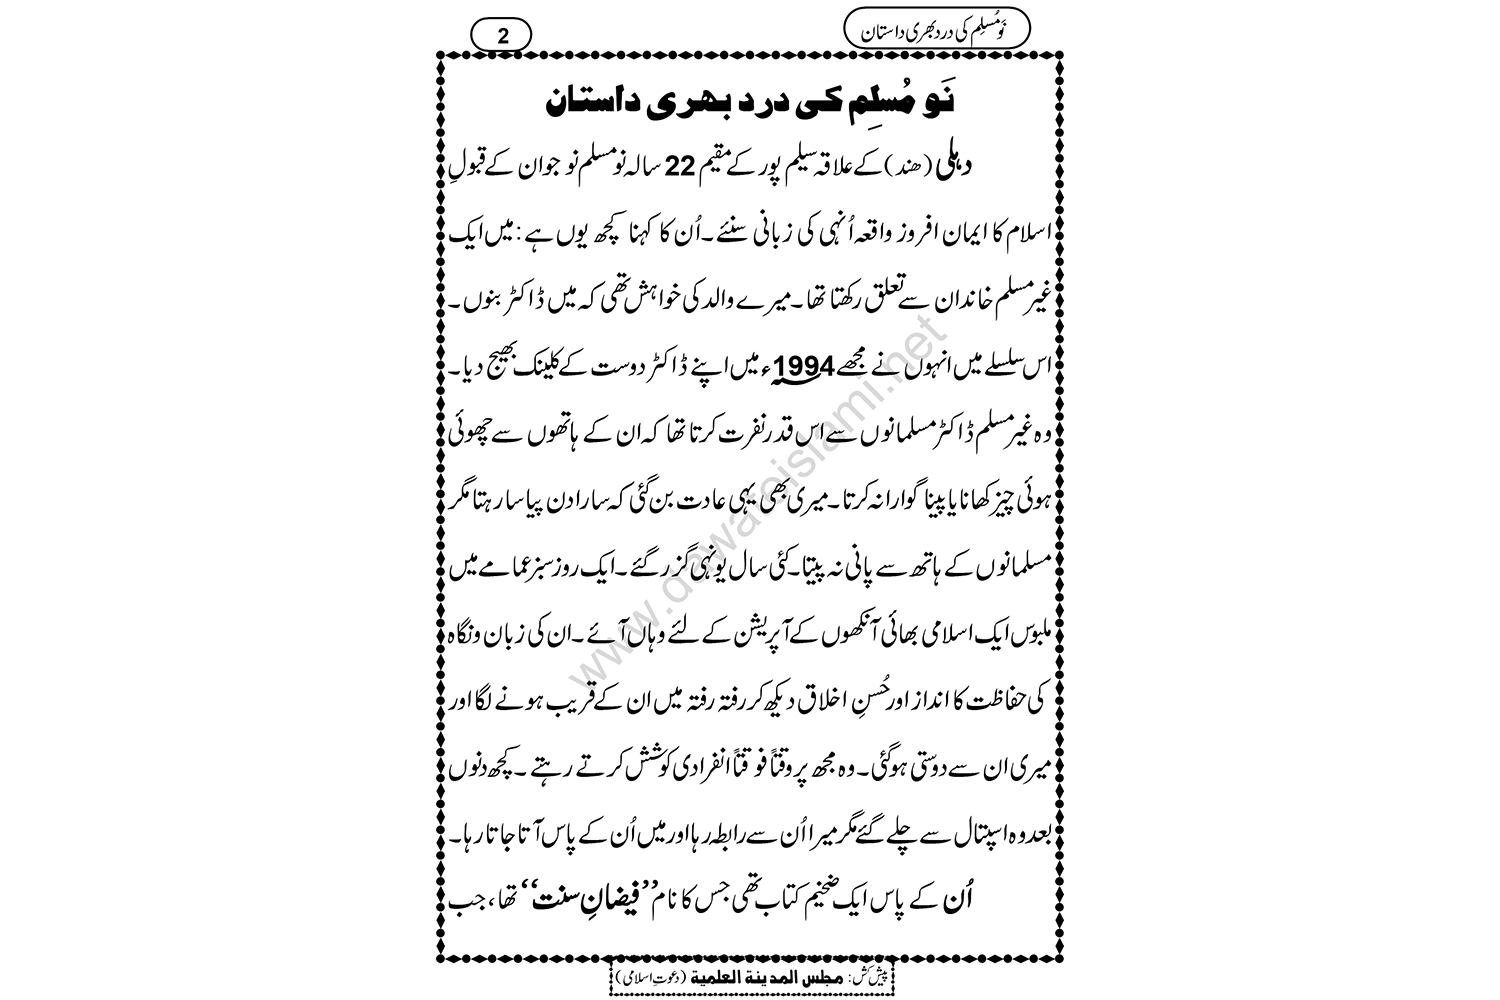 نَو مُسلِم کی درد بھری داستان
2
نَو مُسلِم کی درد بھری داستان
دہلی (ھند) کے علاقہ سیلم پور کے مقیم 22 سالہ نو مسلم نوجوان کے قبولِ
اسلام کا ایمان افروز واقعہ اُنہی کی زبانی سنئے۔ اُن کا کہنا کچھ یوں ہے: میں ایک
غیر مسلم خاندان سے تعلق رکھتا تھا۔ میرے والد کی خواہش تھی کہ میں ڈاکٹر بنوں۔
اس سلسلے میں انہوں نے مجھے 1994ء میں اپنے ڈاکٹر دوست کے کلینک بھیج دیا۔
وہ غیر مسلم ڈاکٹر مسلمانوں سے اس قدر نفرت کرتا تھا کہ ان کے ہاتھوں سے چھوئی
ہوئی چیز کھانا یا پینا گوارا نہ کرتا۔ میری بھی یہی عادت بن گئی کہ سارا دن پیاسا رہتا مگر
مسلمانوں کے ہاتھ سے پانی نہ پیتا۔ کئی سال یونہی گزر گئے۔ ایک روز سبز عمامے میں
ملبوس ایک اسلامی بھائی آنکھوں کے آپریشن کے لئے وہاں آئے۔ ان کی زبان و نگاہ
کی حفاظت کا انداز اور حُسنِ اخلاق دیکھ کر رفتہ رفتہ میں ان کے قریب ہونے لگا اور
میری ان سے دوستی ہو گئی۔ وہ مجھ پر وقتاً فوقتاً انفرادی کوشش کرتے رہتے۔ کچھ دنوں
بعد وہ اسپتال سے چلے گئے مگر میرا اُن سے رابطہ رہا اور میں اُن کے پاس آتا جاتا رہا۔
اُن کے پاس ایک ضخیم کتاب تھی جس کا نام ’’فیضانِ سنت‘‘ تھا، جب
پیش کش: مجلس المدینۃ العلمیۃ (دعوتِ اسلامی)
www.dawateislami.net